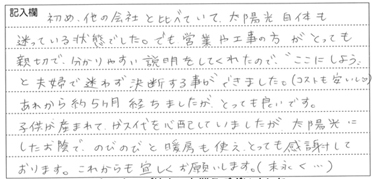 記入欄
初め、他の会社と比べていて、太陽光自体も
迷っている状態でした。でも営業や工事の方がとっても
親切で、分かりやすい説明をしてくれたので、ここにしよう
と夫婦で迷わず決断する事ができました。(コストも安いし♡)
あれから約5ヶ月経ちましたが、とっても良いです。
子供が産まれて、ガス代を心配していましたが、太陽光に
したお陰で、のびのびと暖房も使え、とっても感謝して
おります。これからも宜しくお願いします。(末永く…)